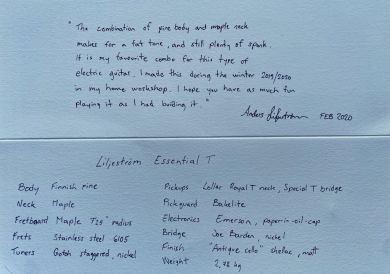 "The combination of pine body and maple neck
makes for a fat tone, and still plenty of spank.
It is my favourite combo for this type of
electric guitar. I made this during the winter 2019/2020
in my home workshop. I hope you have as much fun
playing it as I had building it."
Anders Liljeström FEB 2020
Liljeström Essential T
Body Finnish pine
Neck Maple
Fretboard Maple 7.25" radius
Frets Stainless steel 6105
Tuners Gotoh staggered, nickel
Pickups Lollar Royal T neck, Special T bridge
Pickguard Bakelite
Electronics Emerson, paper-in-oil-cap
Bridge Joe Barden, nickel
Finish "Antique cello" shellac, matt
Weight 2,78 kg